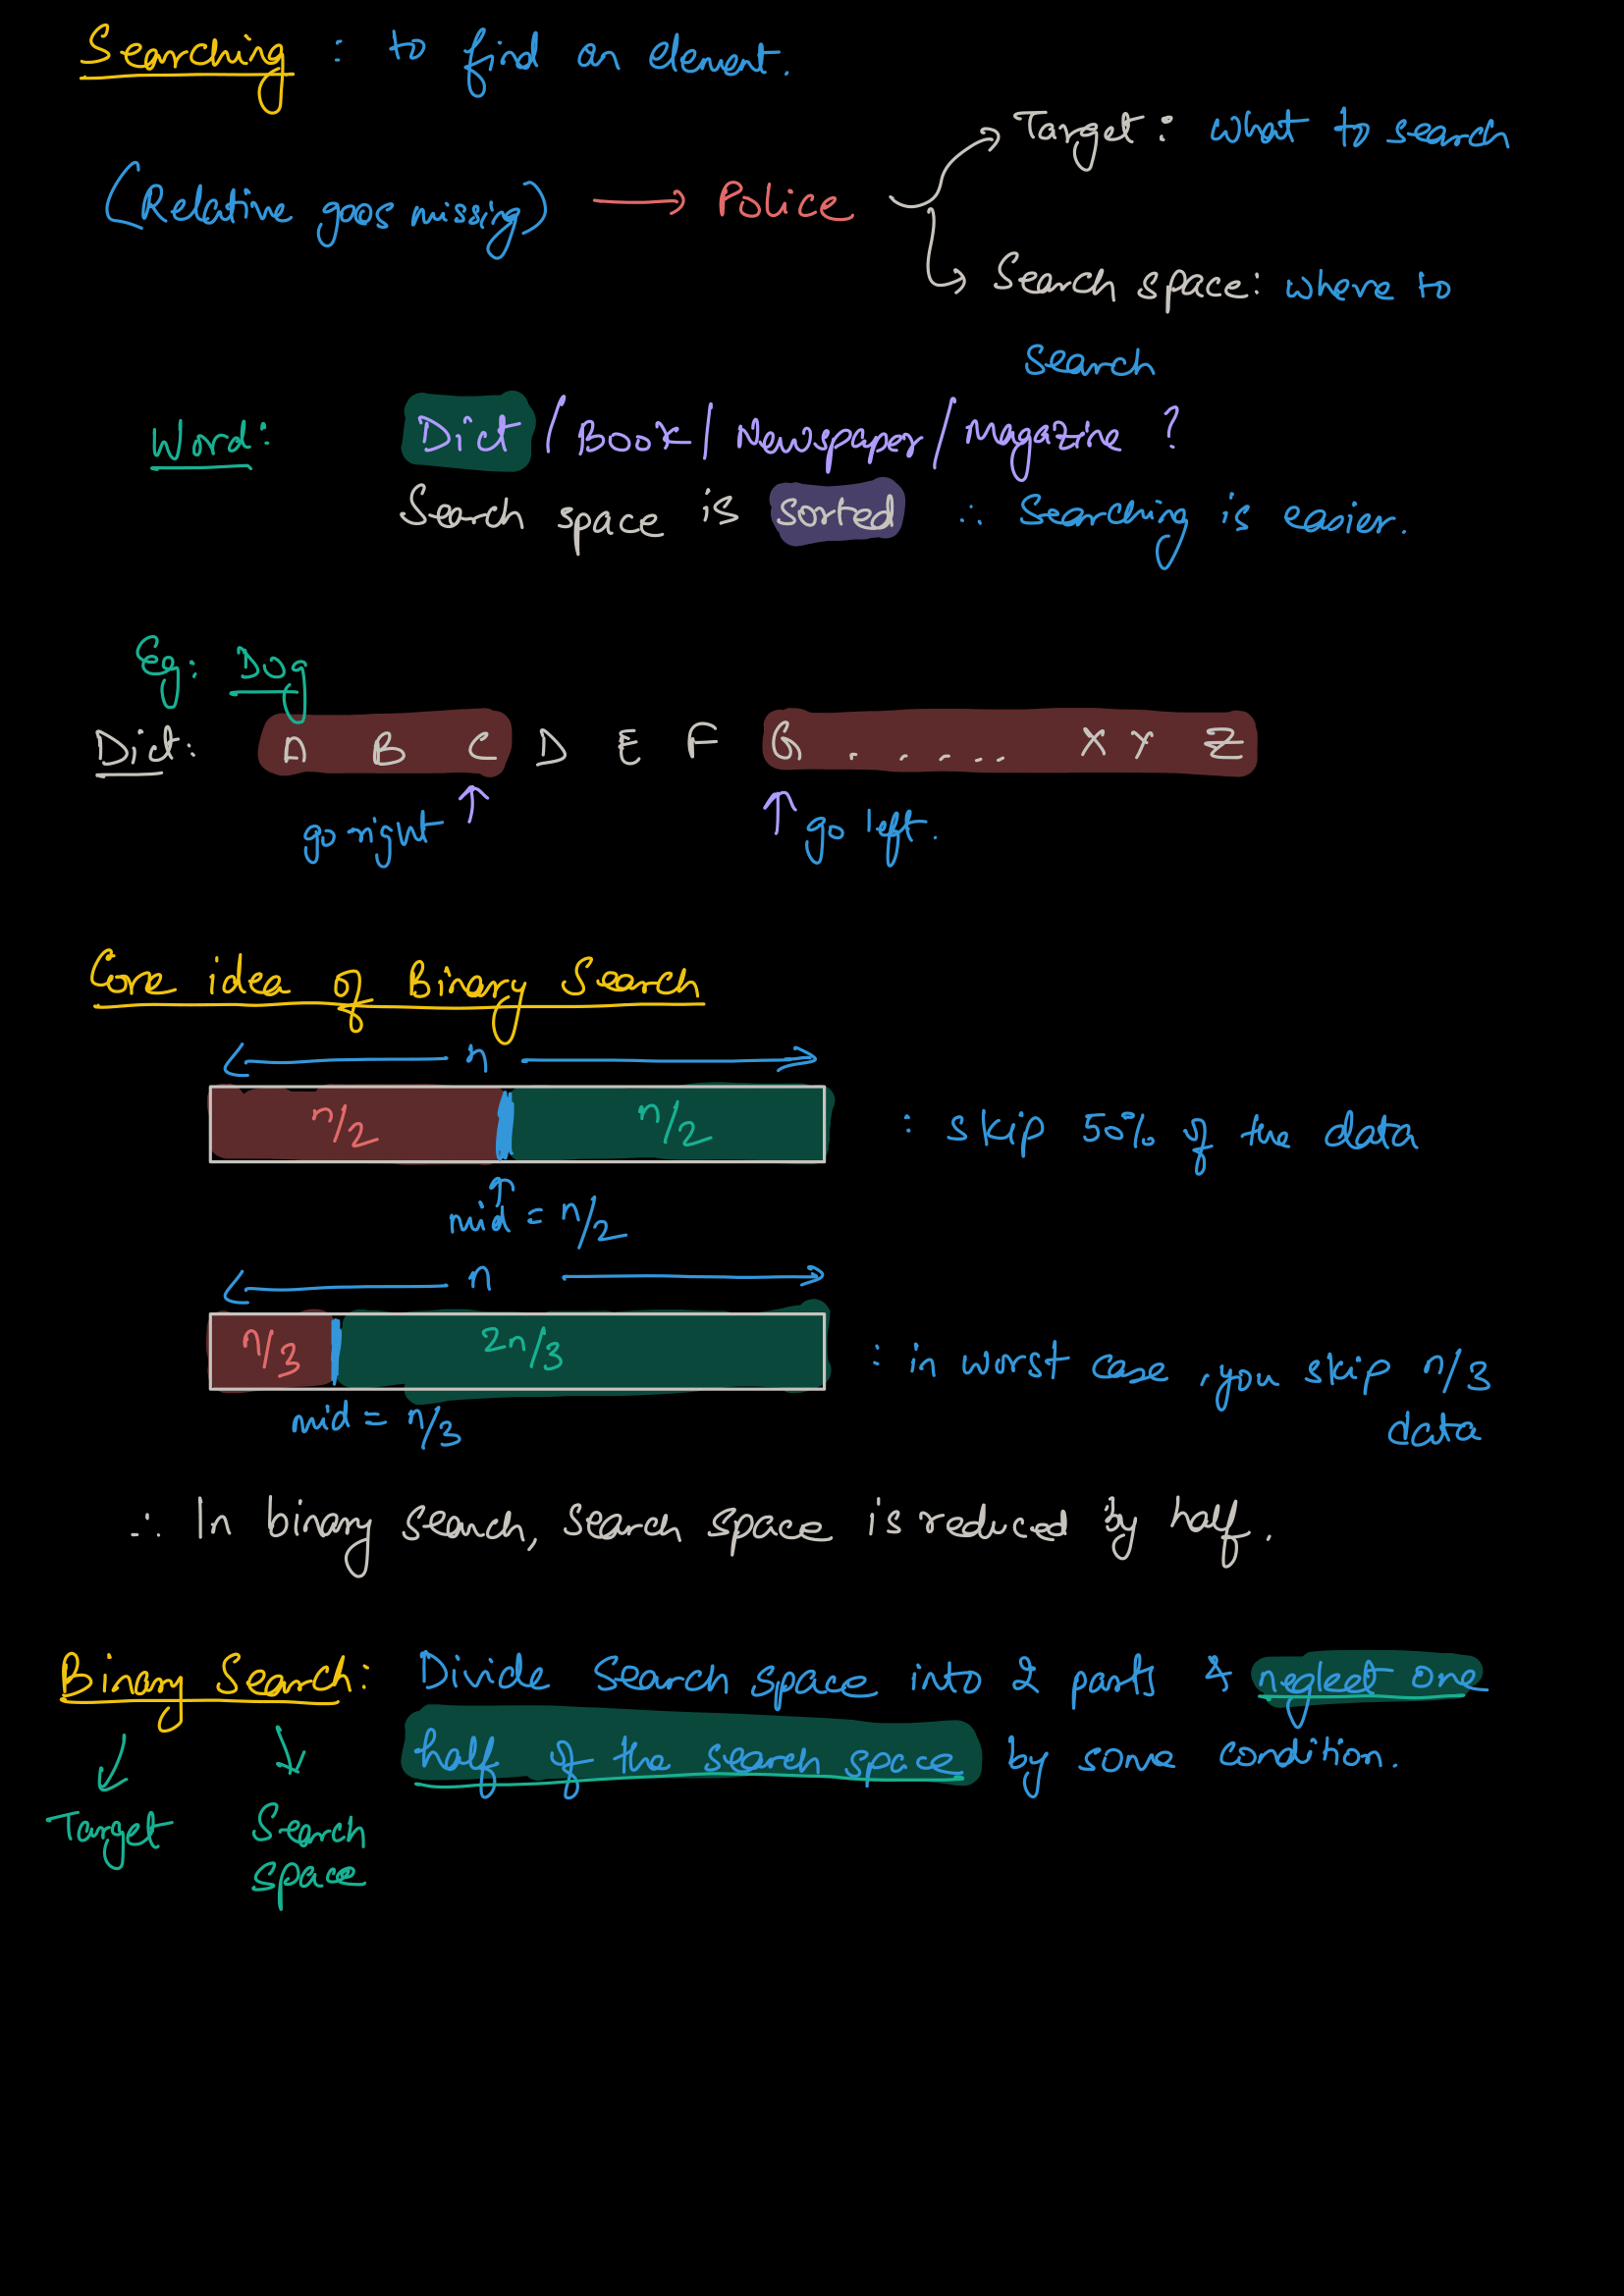 Searching : to find an element.
Target : what to search
(Relative goes missing) → Police
Search space: where to
search
Word: Dict / Book / Newspaper / Magazine ?
Search space is sorted ∴ Searching is easier.
Eg: Dog
Dict: A B C D E F G . . . . . . X Y Z
go right ↑ ↑ go left.
Core idea of Binary Search
n
n/2 n/2 : skip 50% of the data
mid = n/2
n
n/3 2n/3 : in worst case, you skip n/3
mid = n/3 data
∴ In binary search, search space is reduced by half.
Binary Search: Divide search space into 2 parts & neglect one
half of the search space by some condition.
Target Search
space